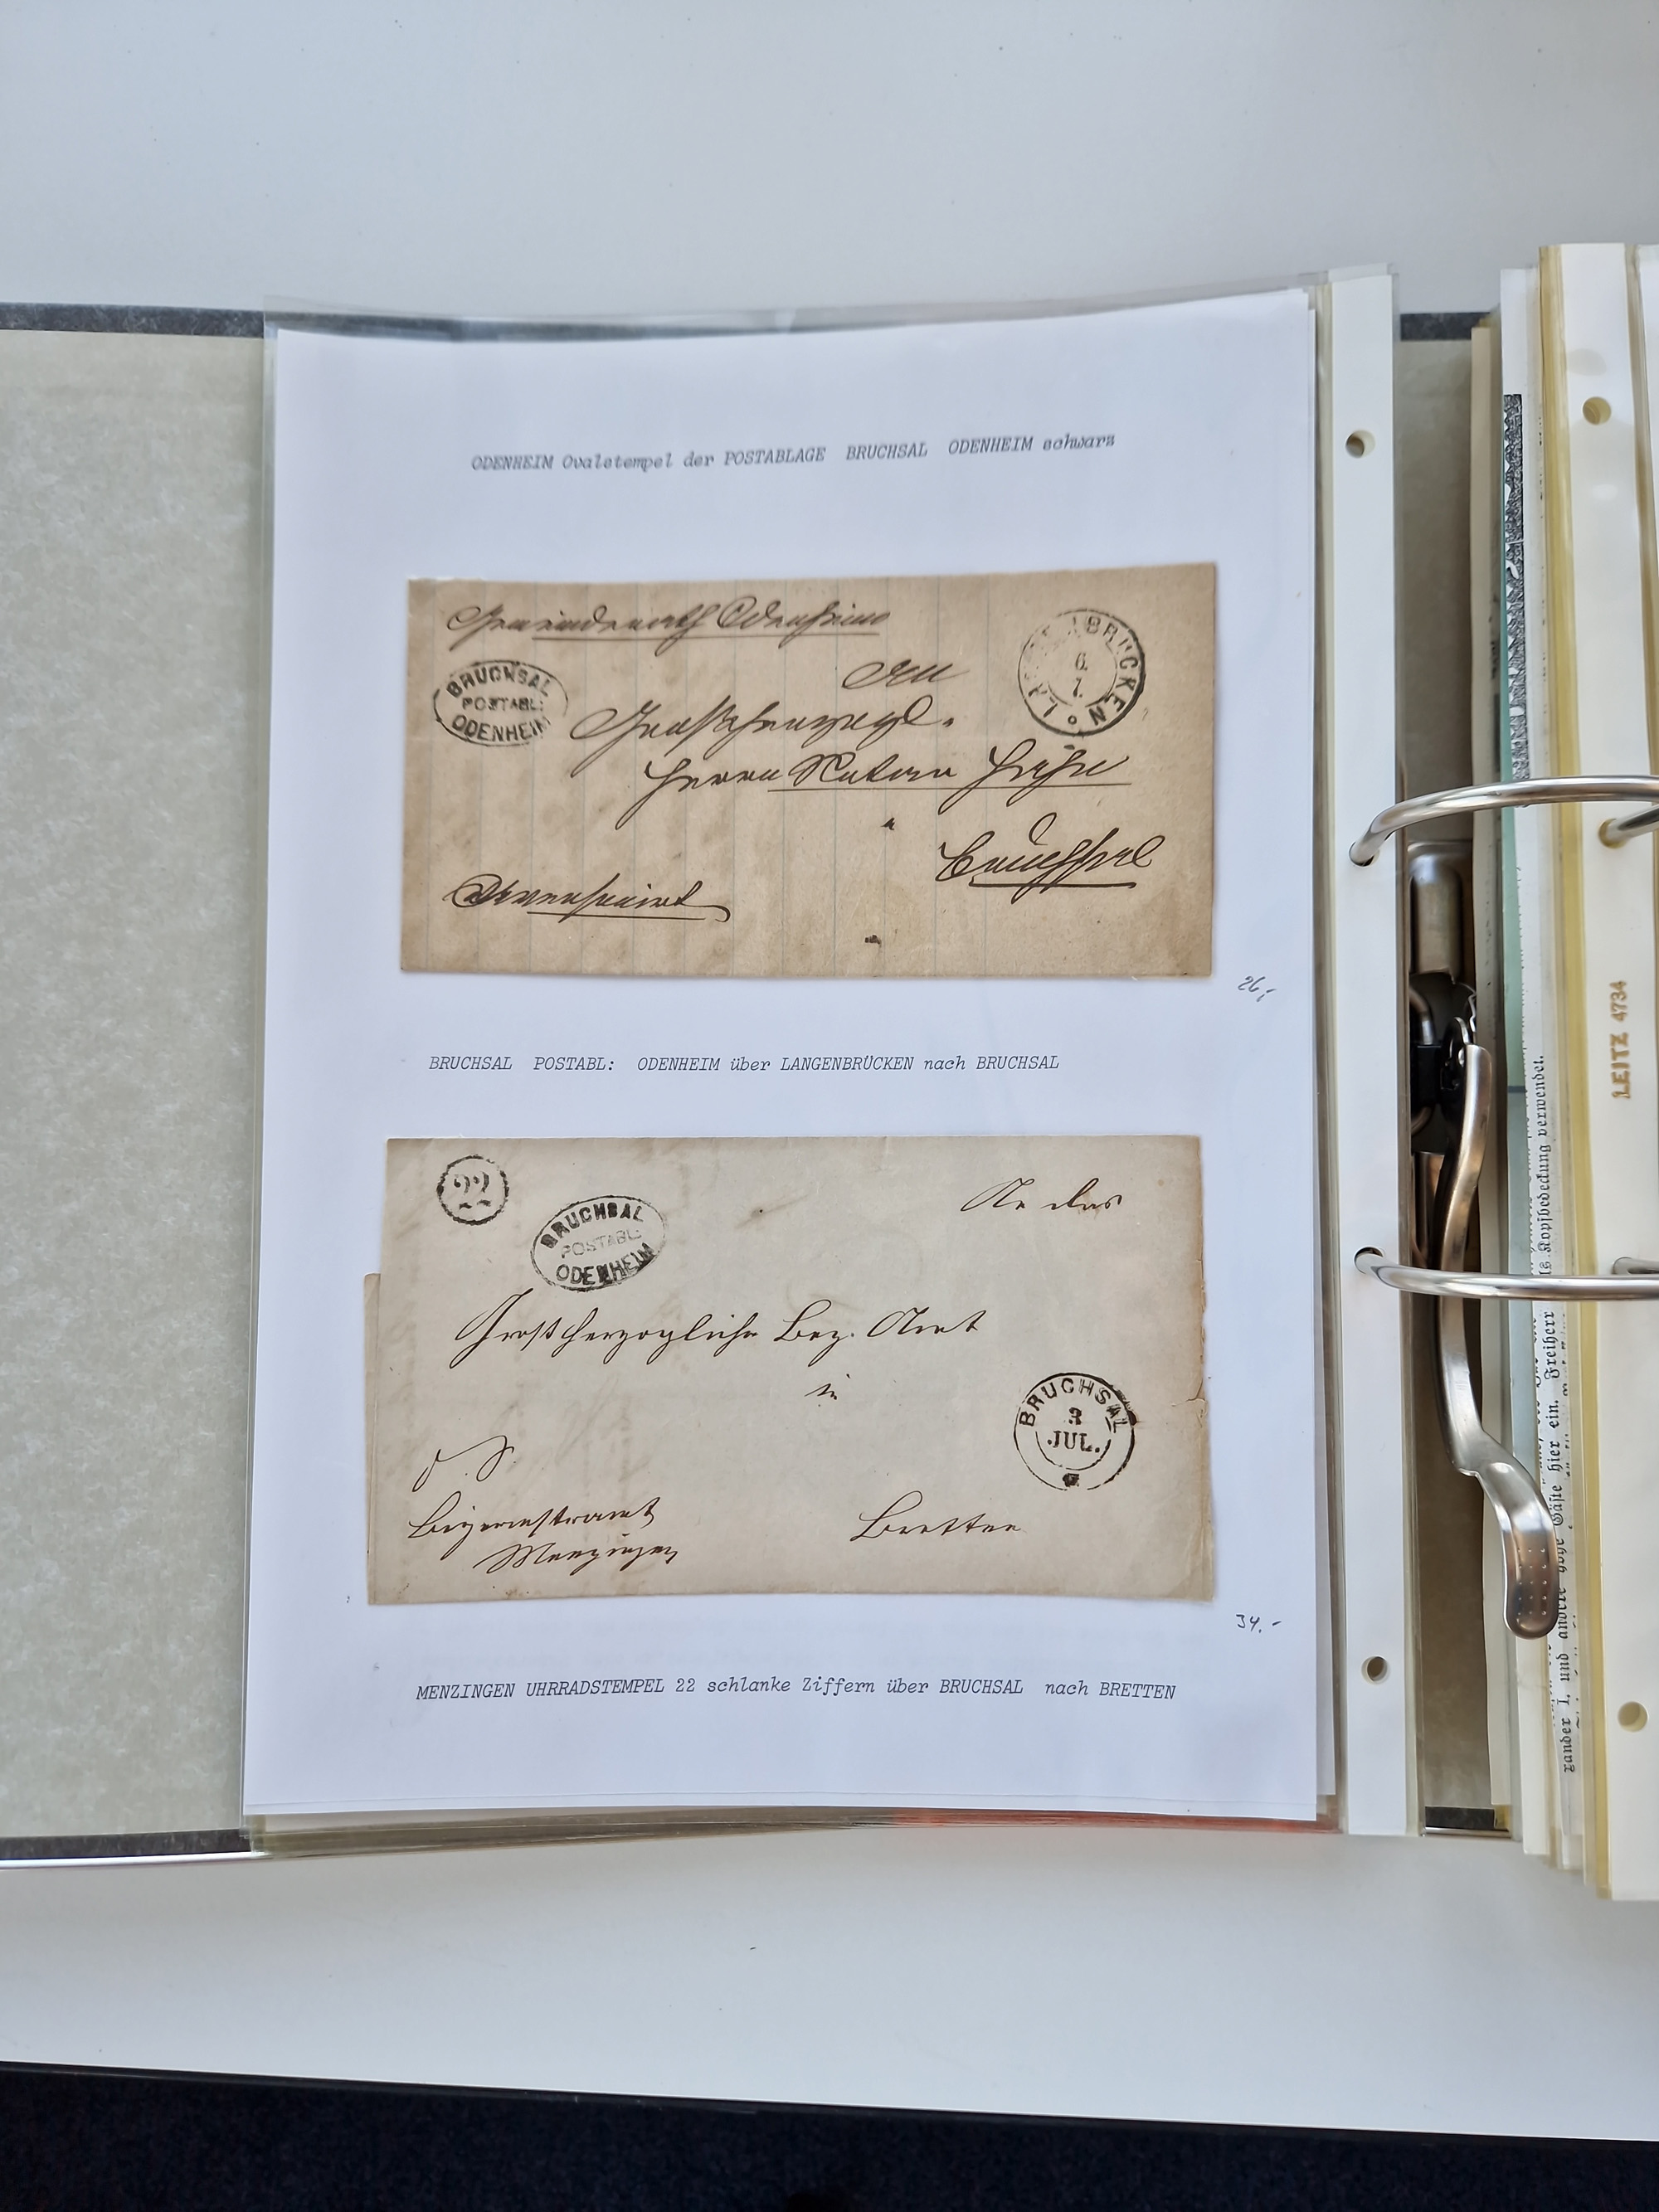 ODENHEIM Ovalstempel der POSTABLAGE BRUCHSAL ODENHEIM schwarz
Gemeinderath Odenheim
BRUCHSAL
POSTABL:
ODENHEIM
BRÜCKEN
6.
7.
An
Großherzogl.
Herrn Notar
Bruchsal
26,-
BRUCHSAL POSTABL: ODENHEIM über LANGENBRÜCKEN nach BRUCHSAL
22
BRUCHSAL
POSTABL:
ODENHEIM
An das
Großherzogliche Bez. Amt
in
BRUCHSAL
3
JUL.
Bürgermstramt
Menzingen
Bretten
34.-
MENZINGEN UHRRADSTEMPEL 22 schlanke Ziffern über BRUCHSAL nach BRETTEN
LEITZ 4734
Kopfbedeckung verwendet.
hier ein. Freiherr
xander I. und andere hohe Gäste